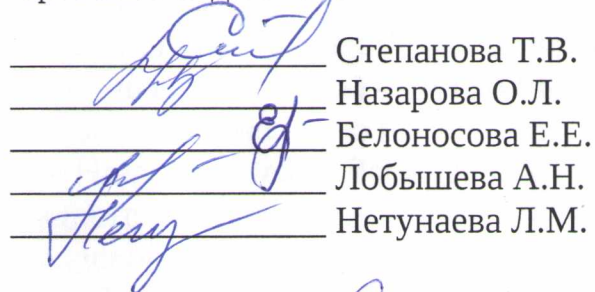 Степанова Т.В.
Назарова О.Л.
Белоносова Е.Е.
Лобышева А.Н.
Нетунаева Л.М.